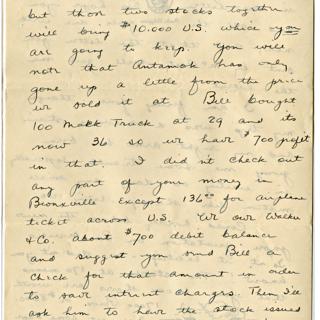 but those two stocks together
will bring $10.000 U.S. which you
are going to keep. You will
note that Antamok has only
gone up a little from the price
we sold it at. Bill bought
100 Makk Truck at 29 and its
now 36 so we have $700 profit
in that. I didnt check out
any part of your money in
Bronxville Except 136⁰⁰ for airplane
ticket across U.S. We owe Walker
& Co. about $700 debit balance
and suggest you send Bill a
Check for that amount in order
to save intrest charges. Then I'll
ask him to have the stock issued